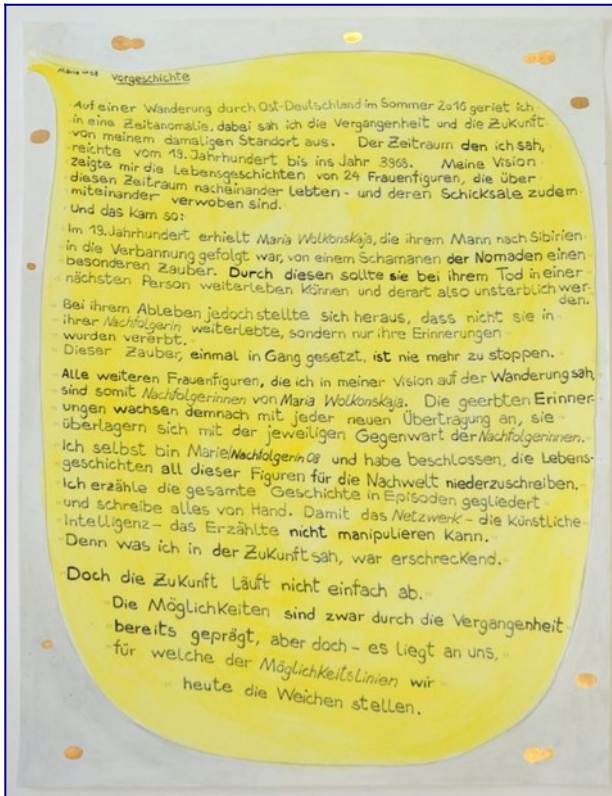 Marie → 08 Vorgeschichte
Auf einer Wanderung durch Ost-Deutschland im Sommer 2016 geriet ich
in eine Zeitanomalie, dabei sah ich die Vergangenheit und die Zukunft
von meinem damaligen Standort aus. Der Zeitraum den ich sah,
reichte vom 19. Jahrhundert bis ins Jahr 3968. Meine Vision
zeigte mir die Lebensgeschichten von 24 Frauenfiguren, die über
diesen Zeitraum nacheinander lebten - und deren Schicksale zudem
miteinander verwoben sind.
Und das kam so:
Im 19. Jahrhundert erhielt Maria Wolkonskaja, die ihrem Mann nach Sibirien
in die Verbannung gefolgt war, von einem Schamanen der Nomaden einen
besonderen Zauber. Durch diesen sollte sie bei ihrem Tod in einer
nächsten Person weiterleben können und derart also unsterblich wer-
den.
Bei ihrem Ableben jedoch stellte sich heraus, dass nicht sie in
ihrer Nachfolgerin weiterlebte, sondern nur ihre Erinnerungen
wurden vererbt.
Dieser Zauber, einmal in Gang gesetzt, ist nie mehr zu stoppen.
Alle weiteren Frauenfiguren, die ich in meiner Vision auf der Wanderung sah,
sind somit Nachfolgerinnen von Maria Wolkonskaja. Die geerbten Erinner-
ungen wachsen demnach mit jeder neuen Übertragung an, sie
überlagern sich mit der jeweiligen Gegenwart der Nachfolgerinnen.
Ich selbst bin Marie/Nachfolgerin 08 und habe beschlossen, die Lebens-
geschichten all dieser Figuren für die Nachwelt niederzuschreiben.
Ich erzähle die gesamte Geschichte in Episoden gegliedert
und schreibe alles von Hand. Damit das Netzwerk - die Künstliche
Intelligenz - das Erzählte nicht manipulieren kann.
Denn was ich in der Zukunft sah, war erschreckend.
Doch die Zukunft läuft nicht einfach ab.
Die Möglichkeiten sind zwar durch die Vergangenheit
bereits geprägt, aber doch - es liegt an uns,
für welche der Möglichkeitslinien wir
heute die Weichen stellen.